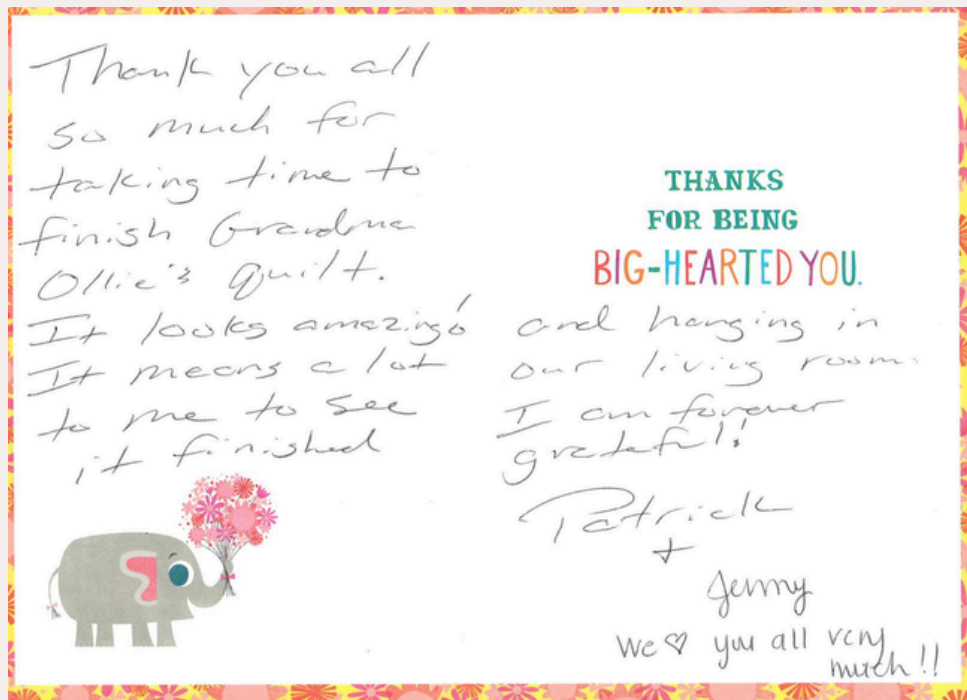 Thank you all
so much for
taking time to
finish Grandma
Ollie's quilt.
It looks amazing!
It means a lot
to me to see
it finished
THANKS
FOR BEING
BIG-HEARTED YOU.
and hanging in
our living room.
I am forever
grateful!
Patrick
+
Jenny
We ♡ you all very
much!!